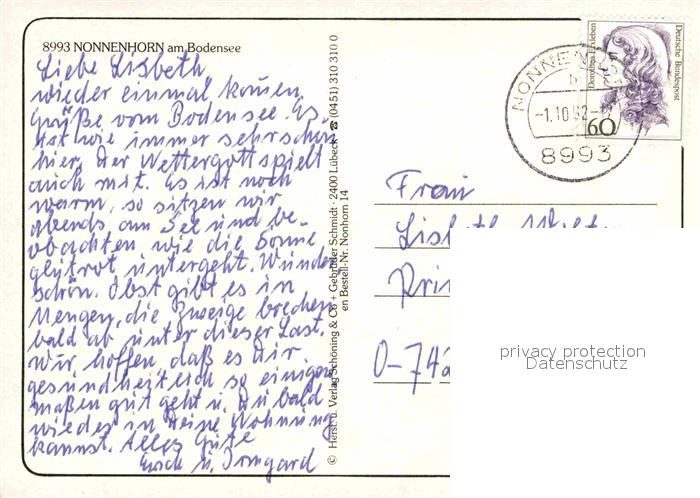 8993 NONNENHORN am Bodensee
Liebe Lisbeth,
wieder einmal kommen
Grüße vom Bodensee. Es
ist wie immer sehr schön
hier, der Wettergott spielt
auch mit. Es ist noch
warm, so sitzen wir
abends am See und be-
obachten wie die Sonne
glutrot untergeht. Wunder
schön. Obst gibt es in
Mengen, die Zweige brechen
bald ab unter dieser Last.
Wir hoffen, daß es dir
gesundheitlich so einiger
maßen gut geht u. du bald
wieder in deine Wohnung
kannst. Alles Gute
u. Irmgard
© Herst. u. Verlag Schöning & Co + Gebrüder Schmidt · 2400 Lübeck · ☎ (0451) 310 310 0
en Bestell-Nr. Nonhorn 14
Dorothea Erxleben
Deutsche Bundespost
60
NONNEN
b
-1.10.92-
8993
Frau
Lis
O-74
privacy protection
Datenschutz